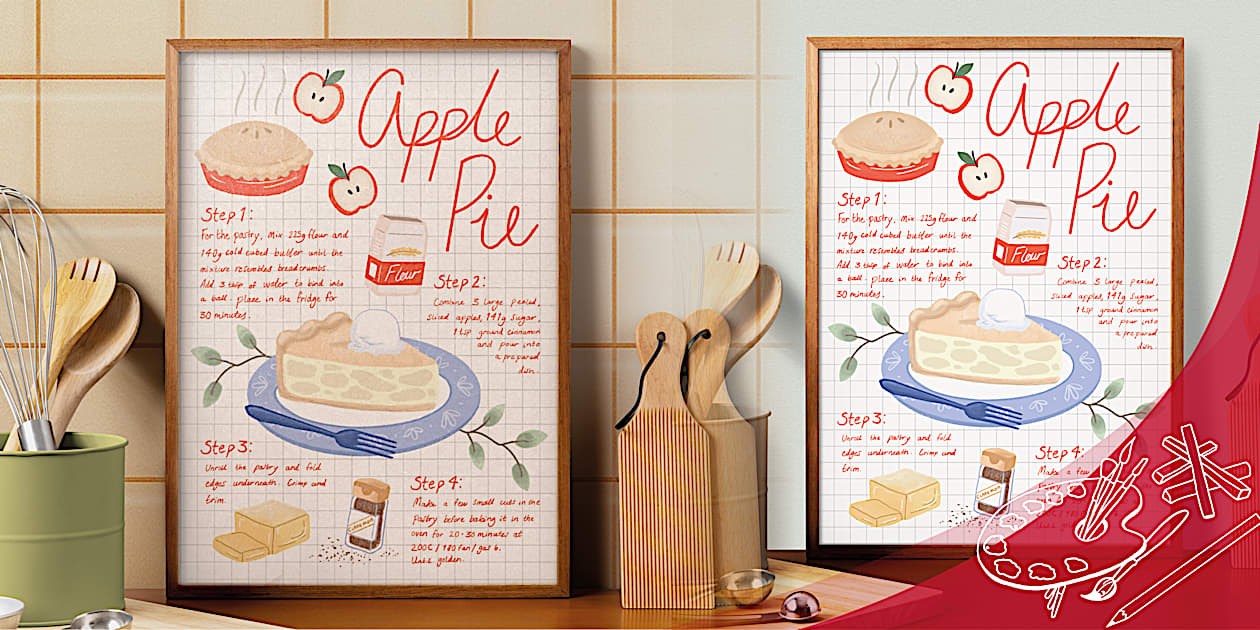 Apple
Pie
Step 1:
For the pastry, mix 225g flour and
140g cold cubed butter until the
mixture resembles breadcrumbs.
Add 3 tbsp of water to bind into
a ball. place in the fridge for
30 minutes.
Flour
Step 2:
Combine 5 large peeled,
sliced apples, 141g sugar,
1 tsp ground cinnamon
and pour into
a prepared
dish.
Step 3:
Unroll the pastry and fold
edges underneath. Crimp and
trim.
Step 4:
Make a few small cuts in the
Pastry before baking it in the
oven for 20-30 minutes at
200C / 180 fan / gas 6.
Until golden.
Apple
Pie
Step 1:
For the pastry, mix 225g flour and
140g cold cubed butter until the
mixture resembles breadcrumbs.
Add 3 tbsp of water to bind into
a ball. place in the fridge for
30 minutes.
Flour
Step 2:
Combine 5 large peeled,
sliced apples, 141g sugar,
1 tsp ground cinnamon
and pour into
a prepared
dish.
Step 3:
Unroll the pastry and fold
edges underneath. Crimp and
trim.
Step 4:
Make a few